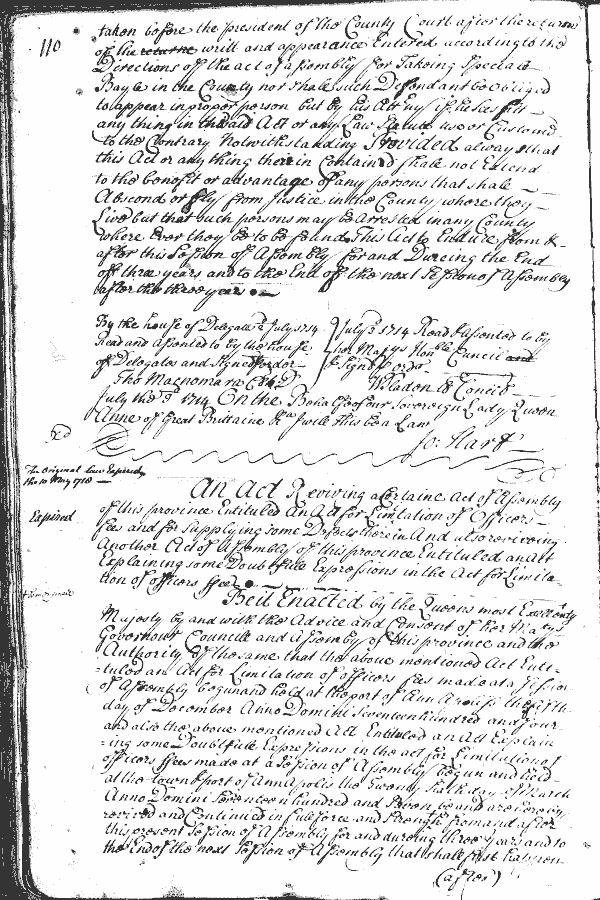 110
taken before the president of the County Court after the return
of the returne writt and appearance Entered according to the
Directions off the act of assembly for Takeing Speciall
Bayle in the County nor shall such Defendant be obliged
to appear in proper person but by his Attrny if he sees fitt
any thing in the said Act or any Law Statute use or Custome
to the Contrary Notwithstanding Provided always that
this Act or any thing therein Contained shall not Extend
to the benefit or advantage of any persons that shall
Abscond or fly from Justice in the County where they
Live but that such persons may be Arrested in any County
where Ever they be to be found This Act to Endure from &
after this Session of Assembly for and Dureing the End
off three years and to the End off the next Session of Assembly
after the three years
By the house of Delegates July 1714
Read and assented to by the house
of Delegates and Signed p order
Tho Macnemara Cl
July 3d 1714 Read & assented to by
her Majtys Honble Councill and
Signd p order
Wm Bladen Cl Concil
July the 3d 1714 On the Behalfe of our Sovereign Lady Queen
Anne of Great Brittaine &ca I will this be a Law
Jo. Hart
The Original Law Expired
the 10 May 1718
An Act Reviving a Certaine Act of Assembly
Expired
of this province Entituled An Act for Limitation of Officers
fees and for Supplying some Defects therein And also reviveing
Another Act of Assembly of this province Entituled an Act
Explaining some Doubtfull Expressions in the Act for Limita-
tion of officers ffees
Be it Enacted by the Queens most Excellent
Majesty by and with the Advice and Consent of her Majtys
Governour Councill and assembly of this province and the
Authority of the same that the above mentioned Act Enti-
tuled an Act for Limitation of officers fees made at a Session
of Assembly begun and held at the port of Annapolis the fifth
day of December Anno Domini Seventeen hundred and four
and also the above mentioned Act Entituled an Act Explain
=ing some Doubtfull Expressions in the act for Limitation of
officers ffees made at a Session of Assembly begun and held
at the town & port of Annapolis the Twenty Sixth day of March
Anno Domini Seventeen hundred and Seven be and are hereby
revived and Continued in full force and Strength from and after
this present Session of Assembly for and dureing three years and to
the End of the next Session of Assembly that shall first happen
(after)